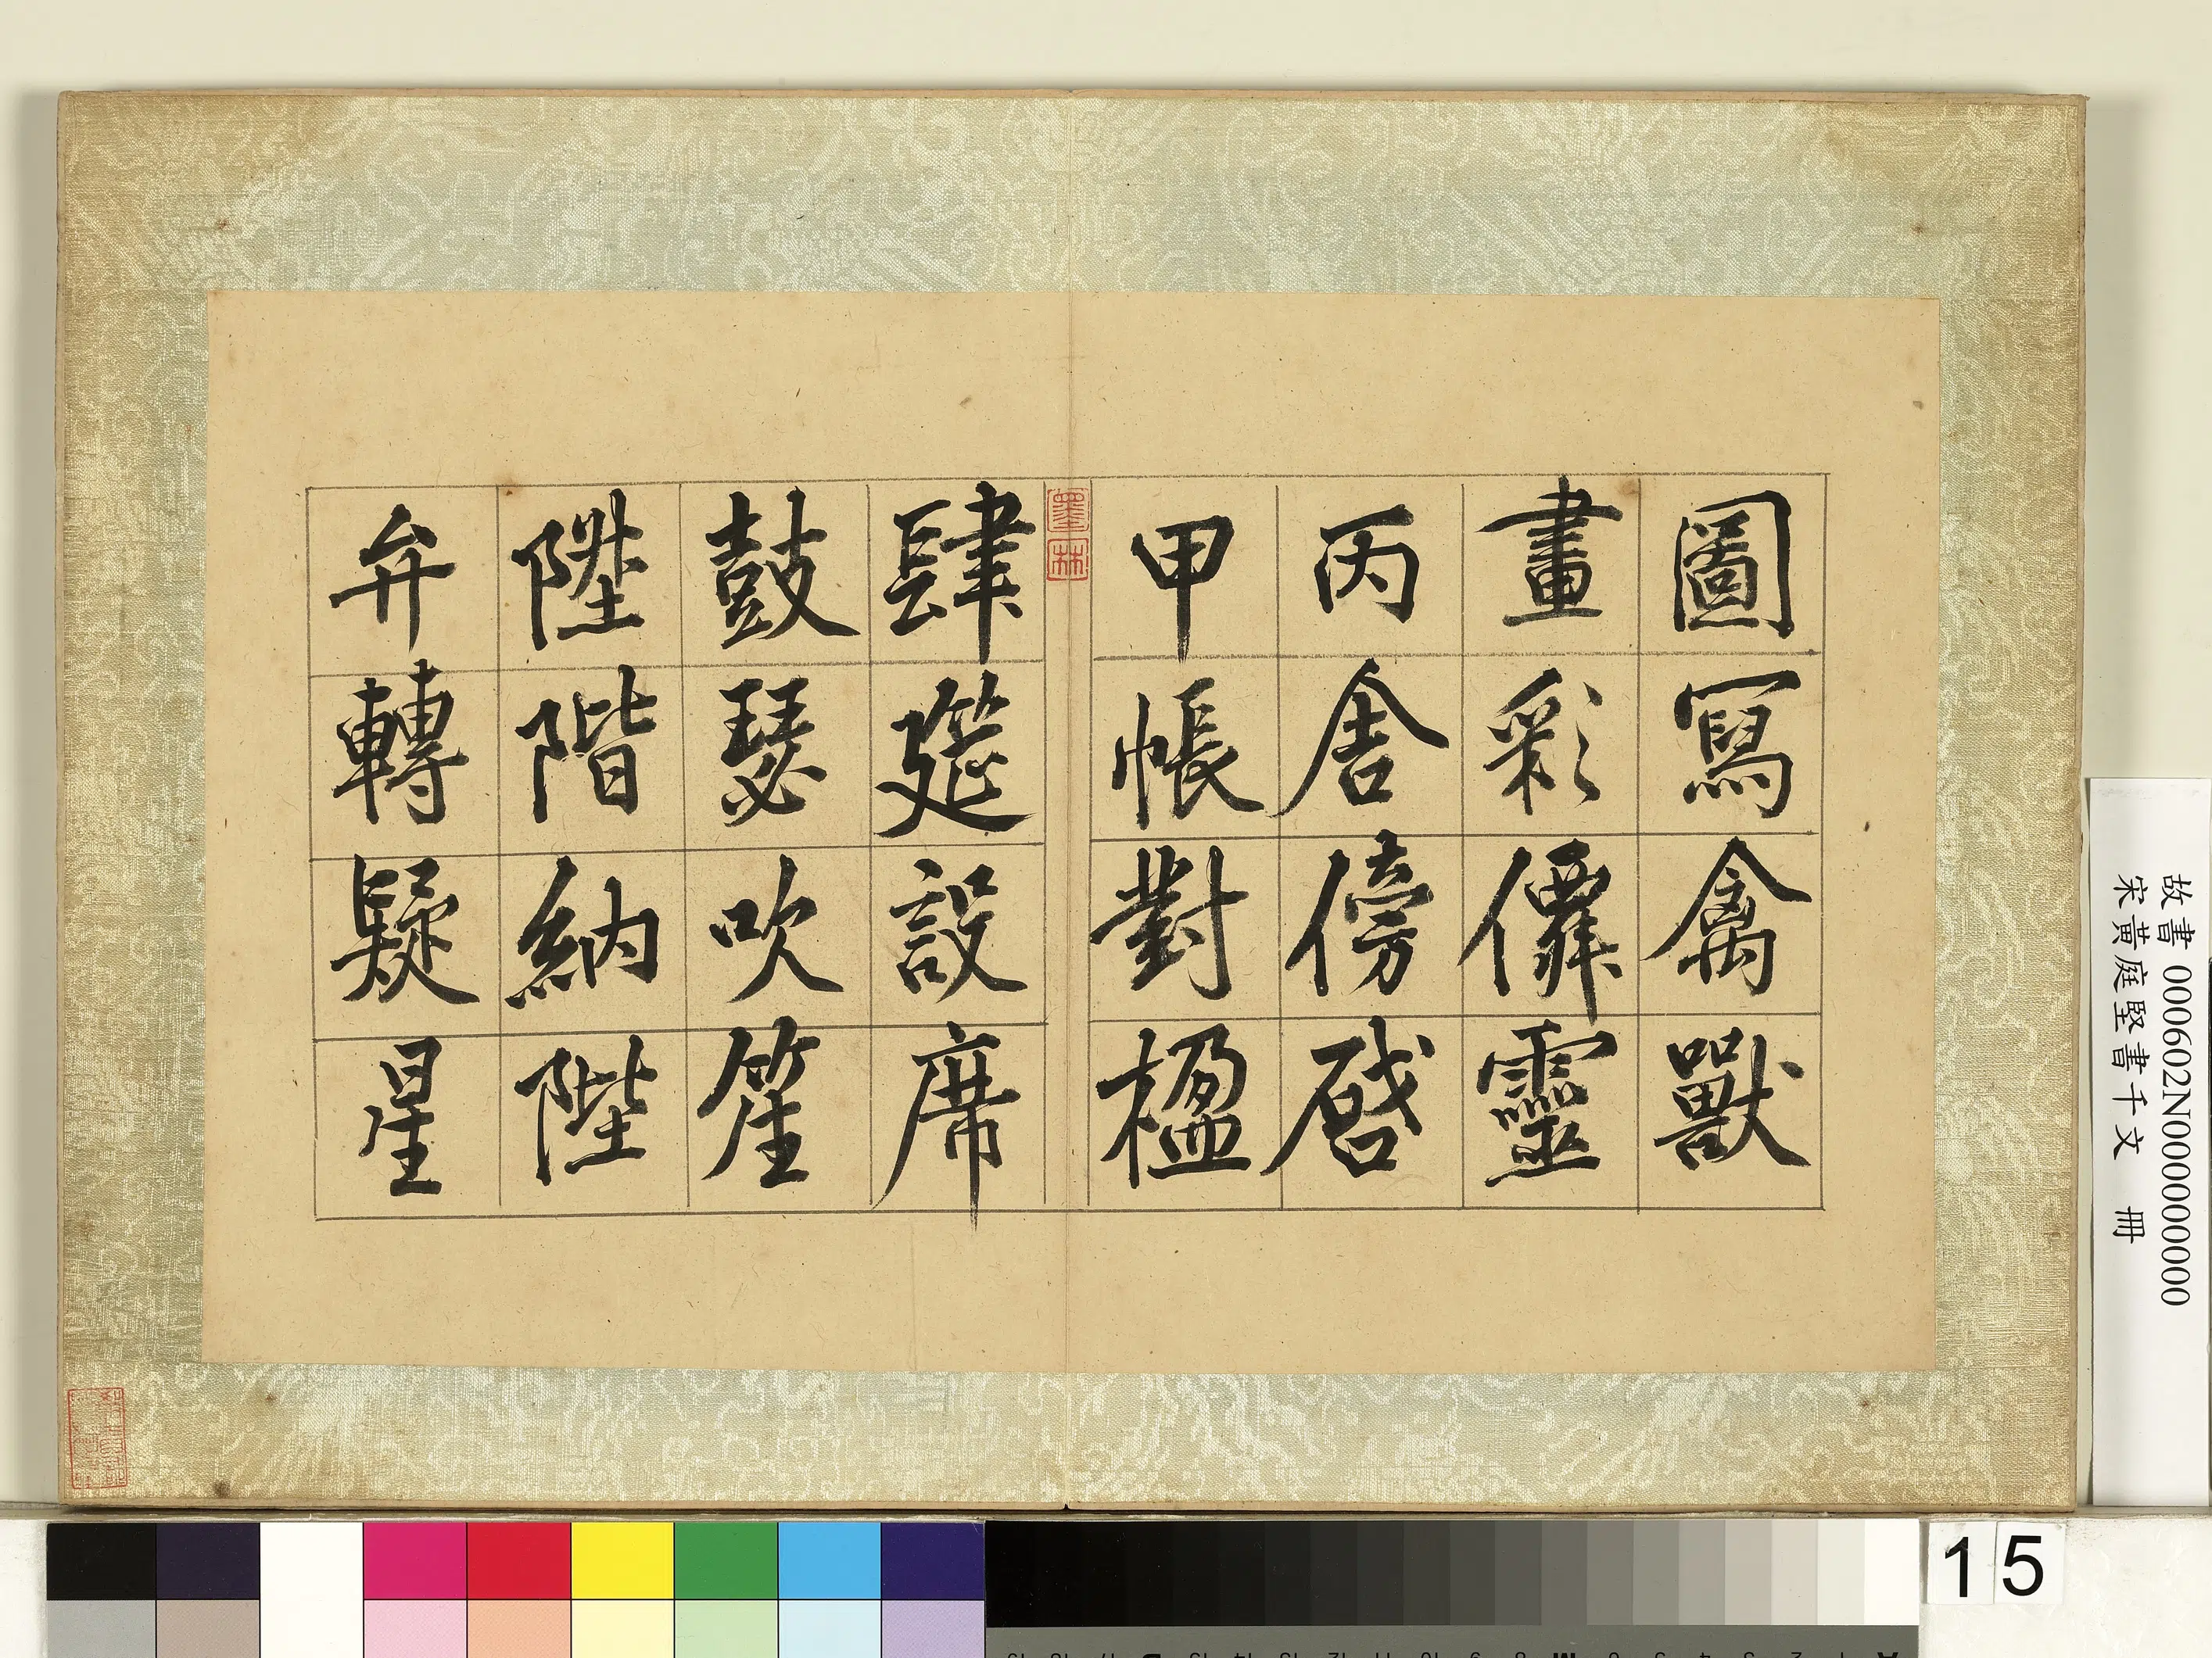 圖寫禽獸
畫彩僊靈
丙舍傍啓
甲帳對楹
墨林
肆筵設席
鼓瑟吹笙
陞階納陛
弁轉疑星
故書 000602N000000000
宋黃庭堅書千文 冊
15